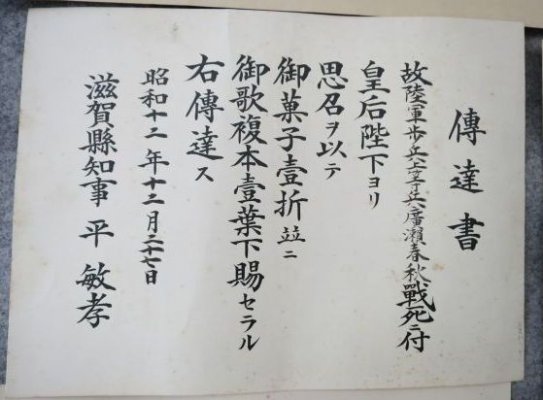 傳達書
故陸軍歩兵上等兵廣瀬春秋戰死ニ付
皇后陛下ヨリ
思召ヲ以テ
御菓子壹折竝ニ
御歌複本壹葉下賜セラル
右傳達ス
昭和十二年十二月二十七日
滋賀縣知事 平 敏孝